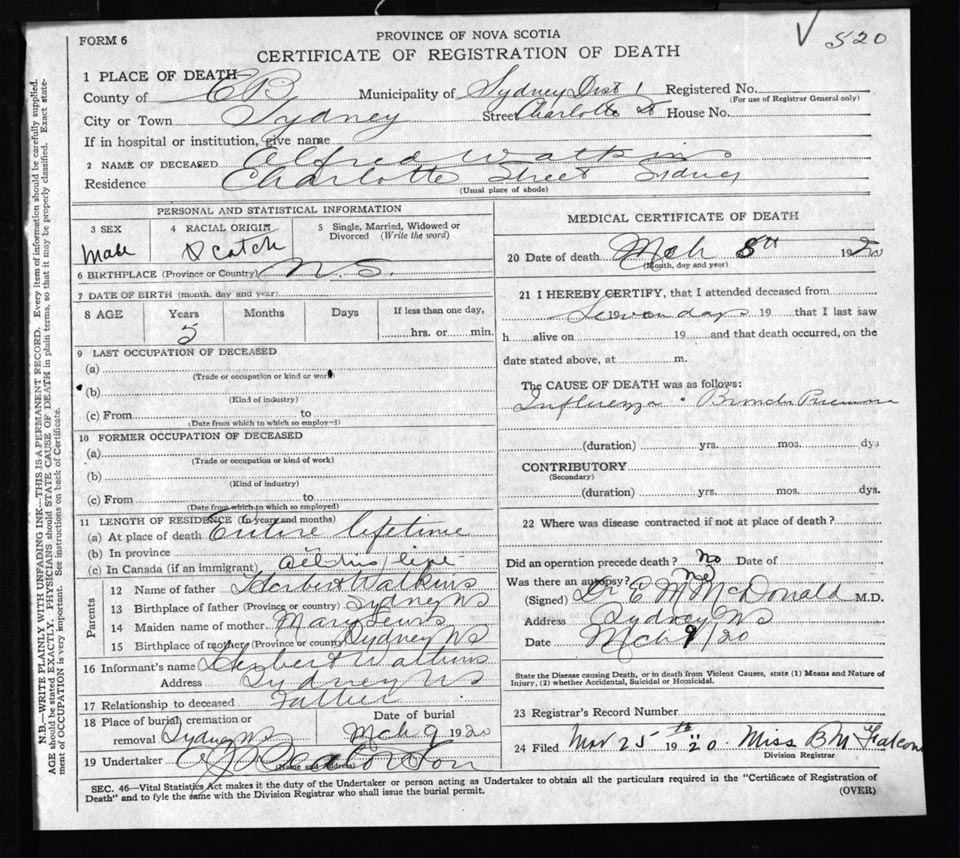 FORM 6
PROVINCE OF NOVA SCOTIA
CERTIFICATE OF REGISTRATION OF DEATH
√ 520
1 PLACE OF DEATH—
County of C B Municipality of Sydney Dist 1 Registered No.
(For use of Registrar General only)
City or Town Sydney Street Charlotte St House No.
If in hospital or institution, give name
2 NAME OF DECEASED Alfred Watkins
Residence Charlotte Street Sydney
(Usual place of abode)
PERSONAL AND STATISTICAL INFORMATION
3 SEX 4 RACIAL ORIGIN 5 Single, Married, Widowed or Divorced (Write the word)
Male Scotch
6 BIRTHPLACE (Province or Country) N. S.
7 DATE OF BIRTH (month, day and year)
8 AGE Years Months Days If less than one day,
5 hrs. or min.
9 LAST OCCUPATION OF DECEASED
(a)
(Trade or occupation or kind or work
(b)
(Kind of industry)
(c) From to
(Date from which to which so employed)
10 FORMER OCCUPATION OF DECEASED
(a)
(Trade or occupation or kind of work)
(b)
(Kind of industry)
(c) From to
(Date from which to which so employed)
11 LENGTH OF RESIDENCE (In years and months)
(a) At place of death Entire lifetime
(b) In province
(c) In Canada (if an immigrant) all his life
Parents
12 Name of father Herbert Watkins
13 Birthplace of father (Province or country) Sydney NS
14 Maiden name of mother Mary Lewis
15 Birthplace of mother (Province or country) Sydney NS
16 Informant's name Herbert Watkins
Address Sydney NS
17 Relationship to deceased Father
18 Place of burial, cremation or removal Sydney NS Date of burial Mch 9 1920
19 Undertaker
(Name and Address)
MEDICAL CERTIFICATE OF DEATH
20 Date of death Mch 8th 1920
(Month, day and year)
21 I HEREBY CERTIFY, that I attended deceased from
19 days 19 that I last saw
h alive on 19 and that death occurred, on the
date stated above, at m.
The CAUSE OF DEATH was as follows:
Influenza Broncho Pneumonia
(duration) yrs. mos. dys
CONTRIBUTORY
(Secondary)
(duration) yrs. mos. dys.
22 Where was disease contracted if not at place of death?
Did an operation precede death? No Date of
Was there an autopsy? No
(Signed) Dr E M McDonald M.D.
Address Sydney NS
Date Mch 9/20
State the Disease causing Death, or in death from Violent Causes, state (1) Means and Nature of Injury, (2) whether Accidental, Suicidal or Homicidal.
23 Registrar's Record Number
24 Filed Mar 25th 1920. Miss B M Falconer
Division Registrar
SEC. 46—Vital Statistics Act makes it the duty of the Undertaker or person acting as Undertaker to obtain all the particulars required in the "Certificate of Registration of
Death" and to fyle the same with the Division Registrar who shall issue the burial permit.
(OVER)
N.B.—WRITE PLAINLY WITH UNFADING INK—THIS IS A PERMANENT RECORD. Every item of information should be carefully supplied.
AGE should be stated EXACTLY. PHYSICIANS should STATE CAUSE OF DEATH in plain terms, so that it may be properly classified. Exact state-
ment of OCCUPATION is very important. See instructions on back of Certificate.